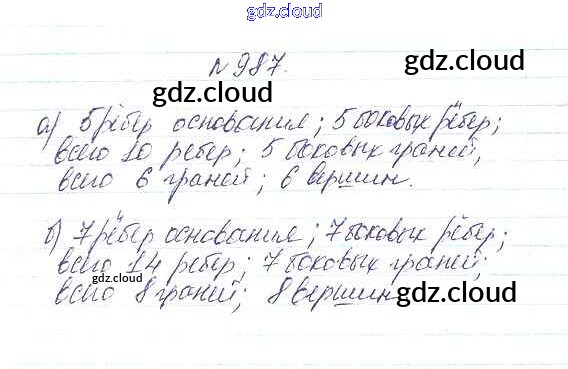 gdz.cloud
N987.
gdz.cloud
gdz.cloud
а) 5 рёбер основания; 5 боковых рёбер;
всего 10 ребер; 5 боковых граней,
всего 6 граней; 6 вершин.
gdz.cloud
gdz.cloud
б) 7 рёбер основания; 7 боковых рёбер;
всего 14 ребер; 7 боковых граней;
gdz.cloud
всего 8 граней; 8 вершин
gdz.cloud